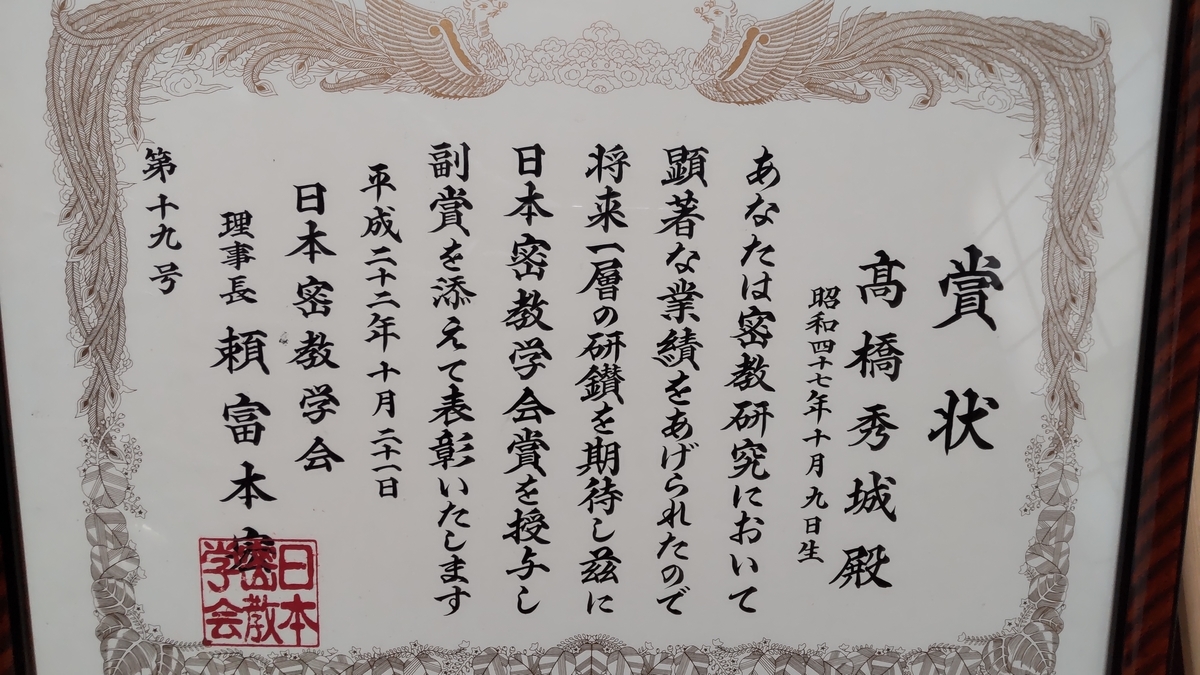 賞状
髙橋秀城殿
昭和四十七年十月九日生
あなたは密教研究において
顕著な業績をあげられたので
将来一層の研鑚を期待し茲に
日本密教学会賞を授与し
副賞を添えて表彰いたします
平成二十二年十月二十一日
日本密教学会
理事長 頼富本宏
第十九号
日本
密教
学会